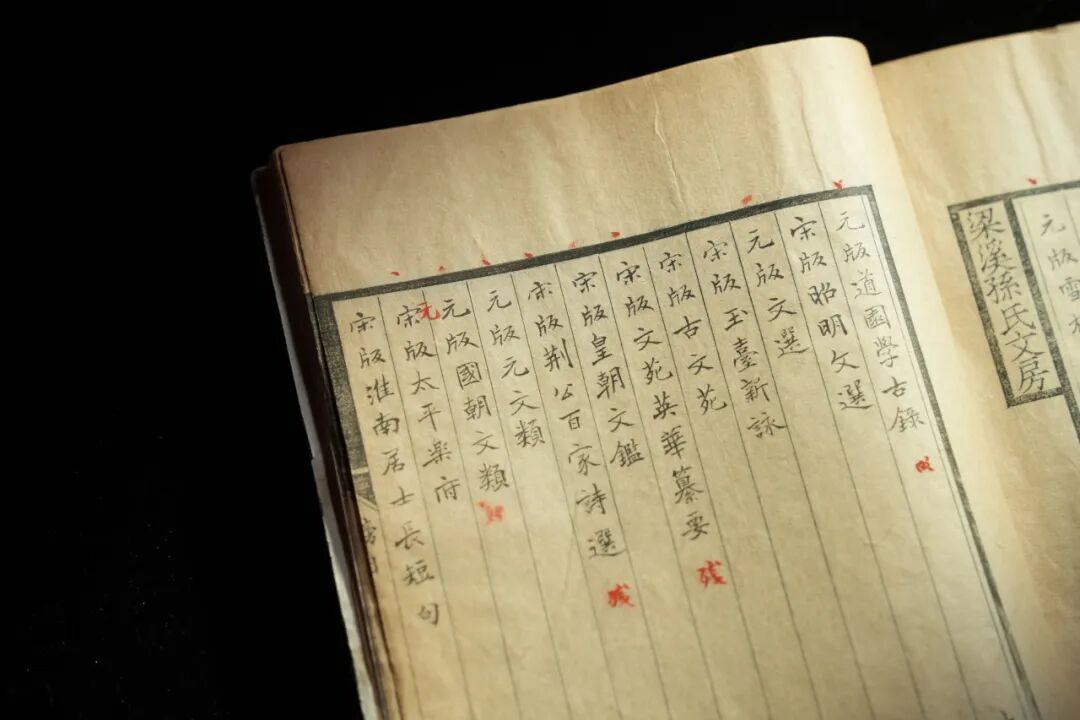 元版雪
梁溪孫氏文房
元版道園學古錄
宋版昭明文選
元版文選
宋版玉臺新詠
宋版古文苑
宋版文苑英華纂要 残
宋版皇朝文鑑
宋版荆公百家詩選 残
元版元文類
元版國朝文類
宋元版太平楽府
宋版淮南居士長短句